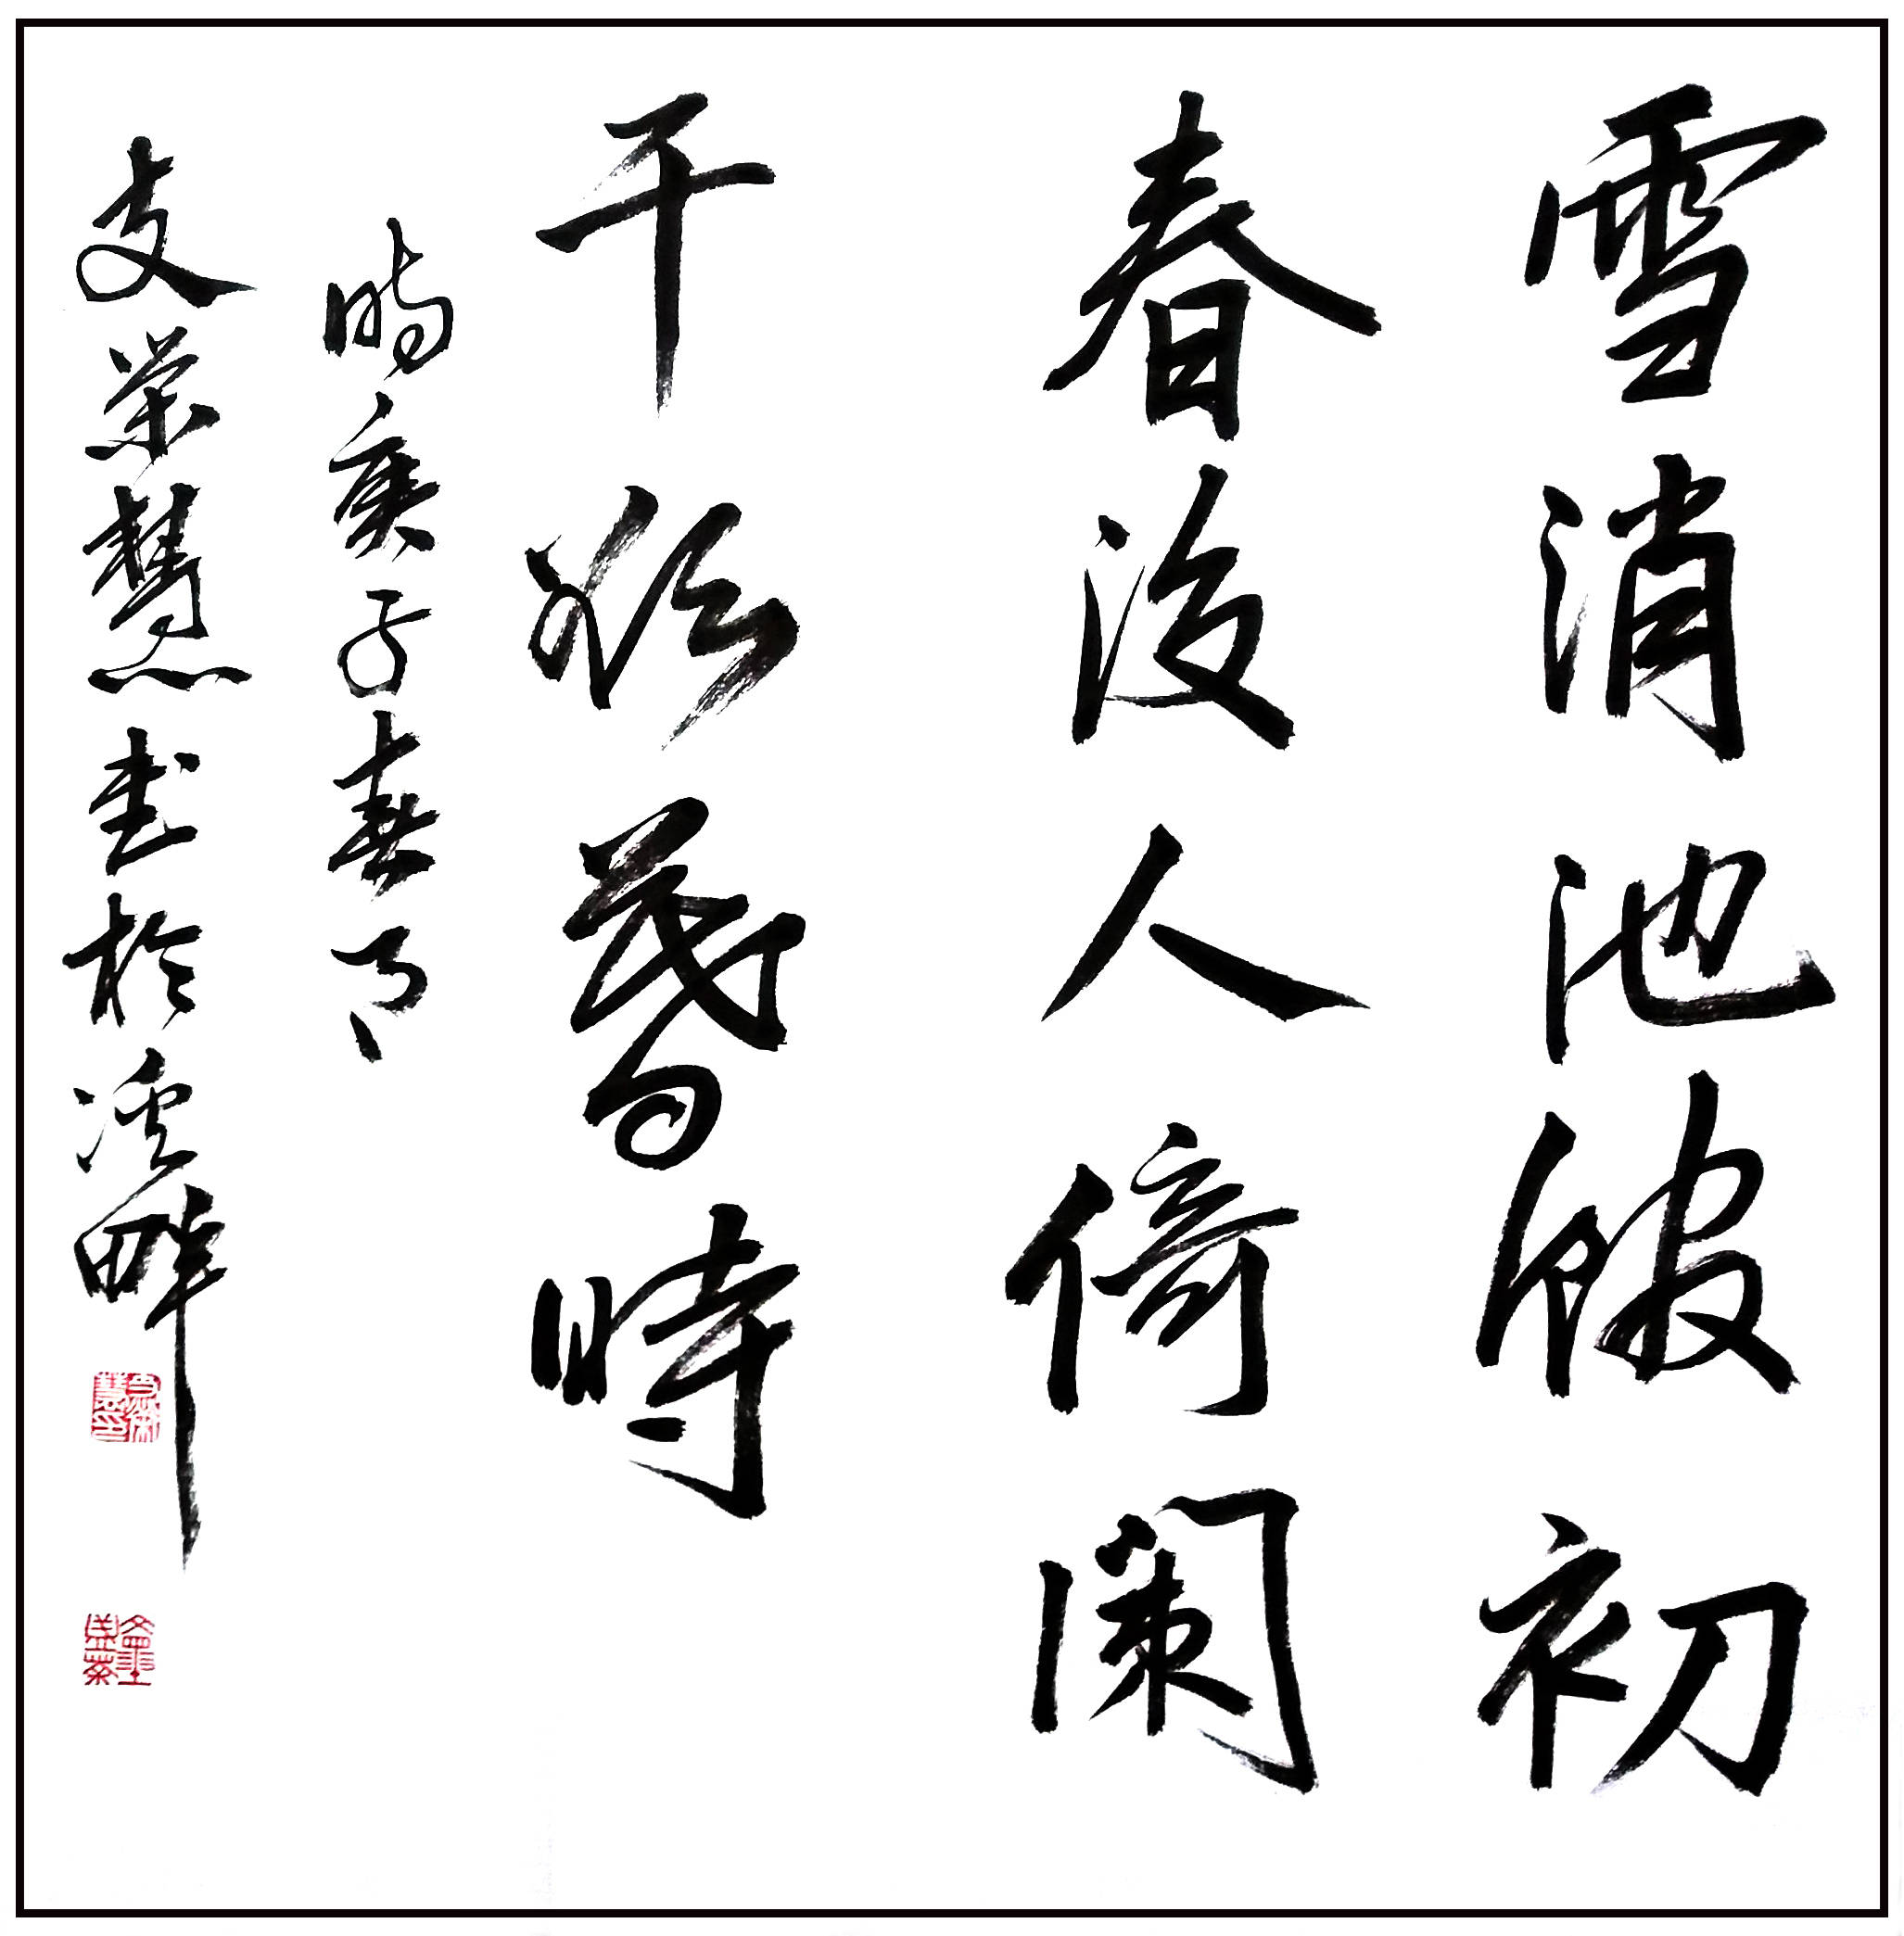 雪消池館初
春後人倚闌
干欲暮時
時庚子春月
支荣慧書於畔